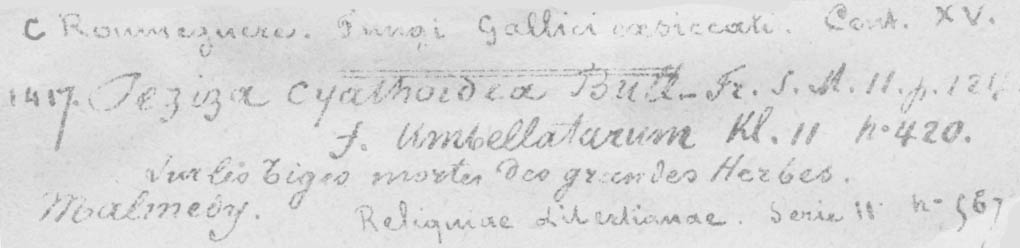 C Roumeguere. Fungi Gallici exsiccati. Cent. XV.
1417. Peziza Cyathoidea Bull. Fr. S. M. 11. p. 124
f. Umbellatarum Kl. 11 no 420.
Sur les Tiges mortes des grandes Herbes.
Malmedy. Reliquiae Libertianae. Serie 11 no 567